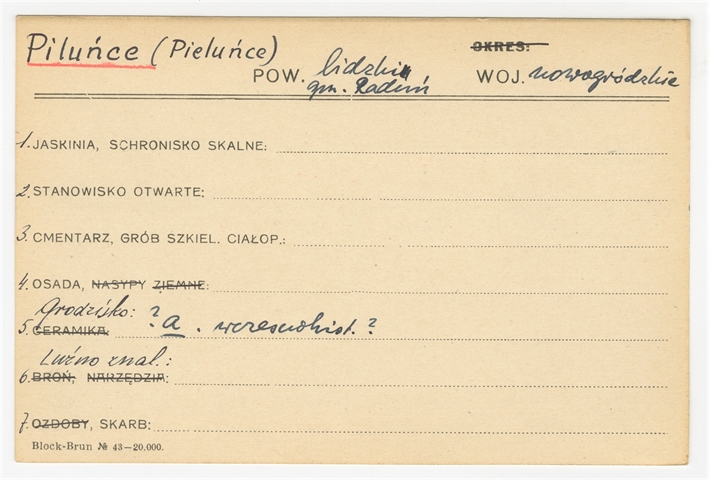 Piluńce (Pieluńce)
OKRES:
POW. lidzki WOJ. nowogródzkie
gm. Raduń
1. JASKINIA, SCHRONISKO SKALNE:
2. STANOWISKO OTWARTE:
3. CMENTARZ, GRÓB SZKIEL. CIAŁOP.:
4. OSADA, NASYPY ZIEMNE:
Grodzisko: ? a. wczesnohist. ?
5. CERAMIKA:
Luźno znal.:
6. BROŃ, NARZĘDZIA:
7. OZDOBY, SKARB:
Block-Brun № 43—20.000.